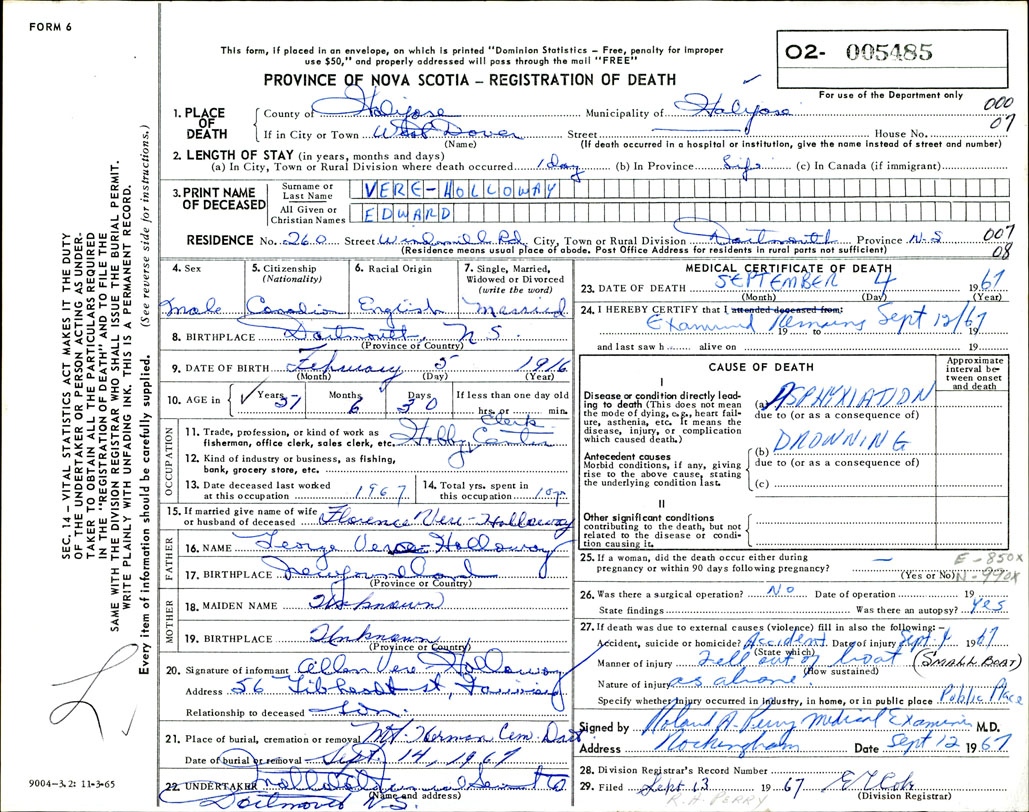 FORM 6
This form, if placed in an envelope, on which is printed "Dominion Statistics – Free, penalty for improper
use $50," and properly addressed will pass through the mail "FREE"
PROVINCE OF NOVA SCOTIA – REGISTRATION OF DEATH
O2- 005485
For use of the Department only
000
07
1. PLACE OF DEATH
County of Halifax Municipality of Halifax
If in City or Town West Dover Street House No.
(Name) (If death occurred in a hospital or institution, give the name instead of street and number)
2. LENGTH OF STAY (in years, months and days)
(a) In City, Town or Rural Division where death occurred 1 day (b) In Province life (c) In Canada (if immigrant)
3. PRINT NAME OF DECEASED
Surname or Last Name VERE-HOLLOWAY
All Given or Christian Names EDWARD
RESIDENCE No. 260 Street Windmill Rd. City, Town or Rural Division Dartmouth Province N-S
(Residence means usual place of abode. Post Office Address for residents in rural parts not sufficient)
007
08
4. Sex
Male
5. Citizenship
(Nationality)
Canadian
6. Racial Origin
English
7. Single, Married,
Widowed or Divorced
(write the word)
Married
8. BIRTHPLACE Dartmouth, N S.
(Province or Country)
9. DATE OF BIRTH February 5 1916
(Month) (Day) (Year)
10. AGE in Years 51 Months 6 Days 30 If less than one day old
hrs. or min.
OCCUPATION
11. Trade, profession, or kind of work as
fisherman, office clerk, sales clerk, etc. Clerk Hobby Center
12. Kind of industry or business, as fishing,
bank, grocery store, etc.
13. Date deceased last worked
at this occupation 1967
14. Total yrs. spent in
this occupation 10 yr
15. If married give name of wife
or husband of deceased Florence Vere-Holloway
FATHER
16. NAME George Vere-Holloway
17. BIRTHPLACE Newfoundland
(Province or Country)
MOTHER
18. MAIDEN NAME Unknown
19. BIRTHPLACE Unknown
(Province or Country)
20. Signature of informant Allan Vere Holloway
Address 56
Relationship to deceased Son.
21. Place of burial, cremation or removal Mt Herman Cem. Dart
Date of burial or removal Sept. 14, 1967
22. UNDERTAKER
(Name and address)
Dartmouth N.S.
MEDICAL CERTIFICATE OF DEATH
23. DATE OF DEATH SEPTEMBER 4 1967
(Month) (Day) (Year)
24. I HEREBY CERTIFY that I attended deceased from:
Examined Remains Sept 12/67
19 to 19
and last saw h alive on 19
CAUSE OF DEATH
Approximate interval between onset and death
I
Disease or condition directly leading to death (This does not mean the mode of dying, e.g., heart failure, asthenia, etc. It means the disease, injury, or complication which caused death.)
(a) ASPHYXIATION
due to (or as a consequence of)
Antecedent causes
Morbid conditions, if any, giving rise to the above cause, stating the underlying condition last.
(b) DROWNING
due to (or as a consequence of)
(c)
II
Other significant conditions
contributing to the death, but not related to the disease or condition causing it.
25. If a woman, did the death occur either during
pregnancy or within 90 days following pregnancy? —
(Yes or No)
E-850X
N-990X
26. Was there a surgical operation? No Date of operation 19
State findings Was there an autopsy? Yes
27. If death was due to external causes (violence) fill in also the following:–
Accident, suicide or homicide? Accident Date of injury Sept. 4 1967
(State which)
Manner of injury Fell out of boat (SMALL BOAT)
(How sustained)
Nature of injury as above.
Specify whether injury occurred in industry, in home, or in public place Public Place
Signed by Roland A. Perry Medical Examiner M.D.
Address Rockingham Date Sept 12 1967
28. Division Registrar's Record Number
29. Filed Sept 13 1967
(Division Registrar)
R.A. PERRY
SEC. 14 – VITAL STATISTICS ACT MAKES IT THE DUTY
OF THE UNDERTAKER OR PERSON ACTING AS UNDER-
TAKER TO OBTAIN ALL THE PARTICULARS REQUIRED
IN THE "REGISTRATION OF DEATH" AND TO FILE THE
SAME WITH THE DIVISION REGISTRAR WHO SHALL ISSUE THE BURIAL PERMIT.
WRITE PLAINLY WITH UNFADING INK. THIS IS A PERMANENT RECORD.
Every item of information should be carefully supplied. (See reverse side for instructions.)
9004–3.2: 11-3-65